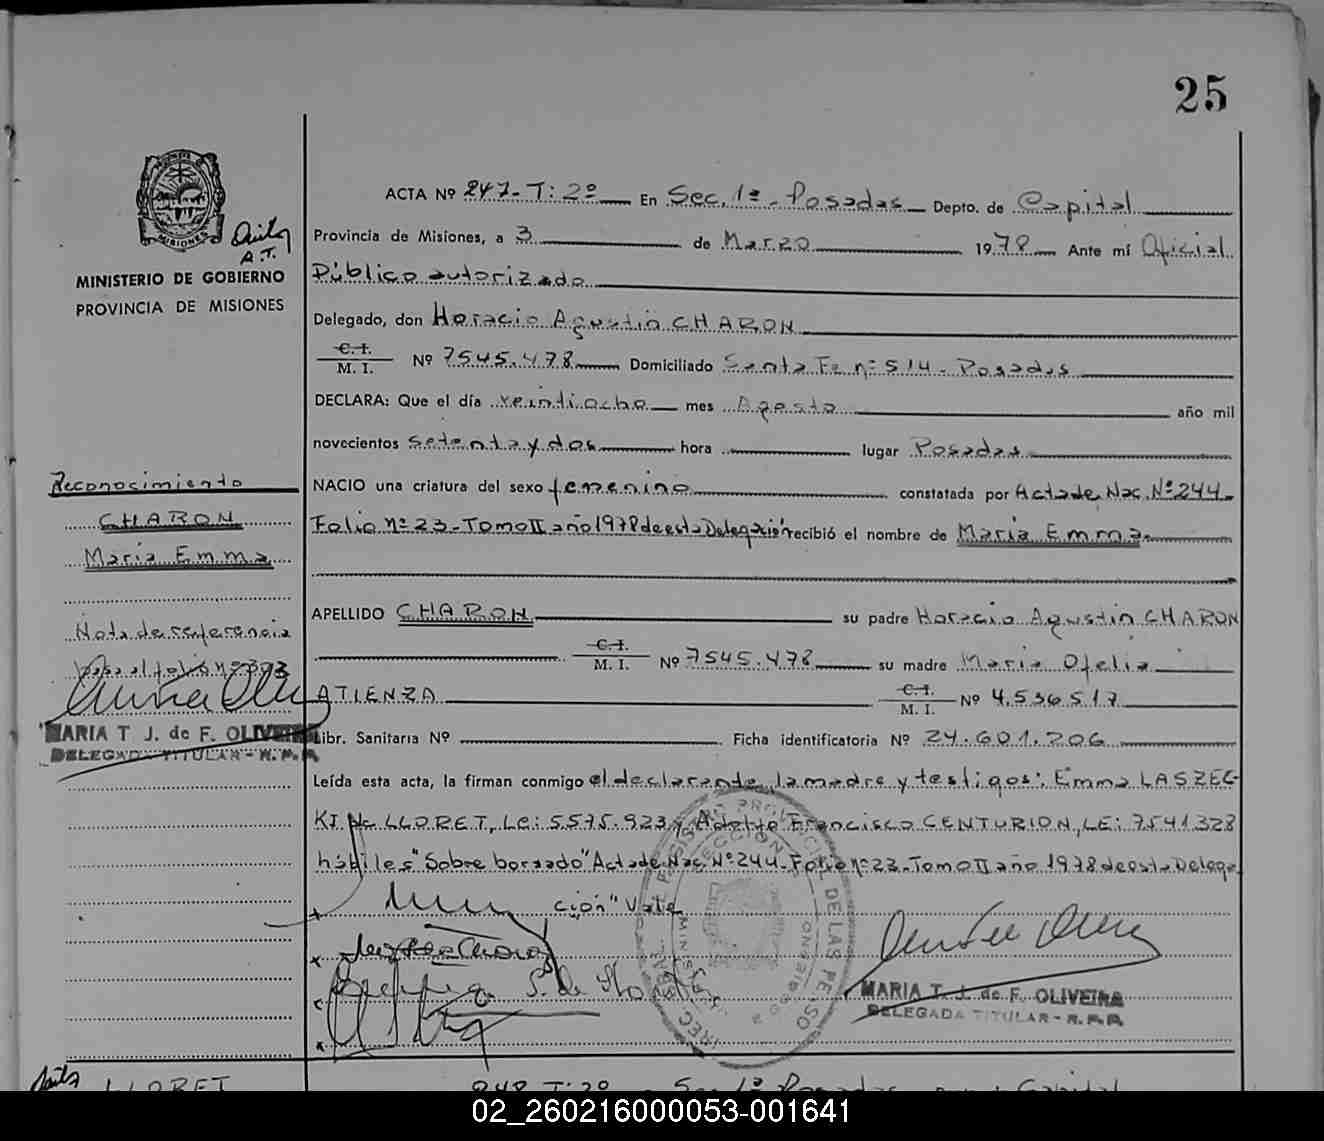 25
MISIONES
A.T.
MINISTERIO DE GOBIERNO
PROVINCIA DE MISIONES
ACTA Nº 247-T: 2º En Sec. 1ª - Posadas Depto. de Capital
Provincia de Misiones, a 3 de Marzo 1978 Ante mí Oficial
Público autorizado
Delegado, don Horacio Agustín CHARON
C.I.
M. I. Nº 7545.478 Domiciliado Santa Fe nº 514 - Posadas
DECLARA: Que el día veintiocho mes Agosto año mil
novecientos setenta y dos hora lugar Posadas
NACIO una criatura del sexo femenino constatada por Acta de Nac. Nº 244-
Folio nº 23 - Tomo II año 1978 de esta Delegación recibió el nombre de María Emma
APELLIDO CHARON su padre Horacio Agustín CHARON
C.I.
M. I. Nº 7545.478 su madre María Ofelia
ATIENZA C.I.
M. I. Nº 4.536.517
Libr. Sanitaria Nº Ficha identificatoria Nº 24.601.206
Leída esta acta, la firman conmigo el declarante, la madre y testigos: Emma LASZEC-
KI de LLORET, LC: 5.575.923 y Adolfo Francisco CENTURION, LE: 7541328
hábiles "Sobre borrado" Acta de Nac. Nº 244 - Folio nº 23 - Tomo II año 1978 de esta Delega-
ción" Vale
Reconocimiento
CHARON
María Emma
Nota de referencia
pasa al folio nº 393
MARIA T J. de F. OLIVEIRA
DELEGADA TITULAR - R.P.P.
MARIA T. J. de F. OLIVEIRA
DELEGADA TITULAR - R.P.P.
LLORET
248 T: 2º Sec 1ª Posadas Capital
02_260216000053-001641